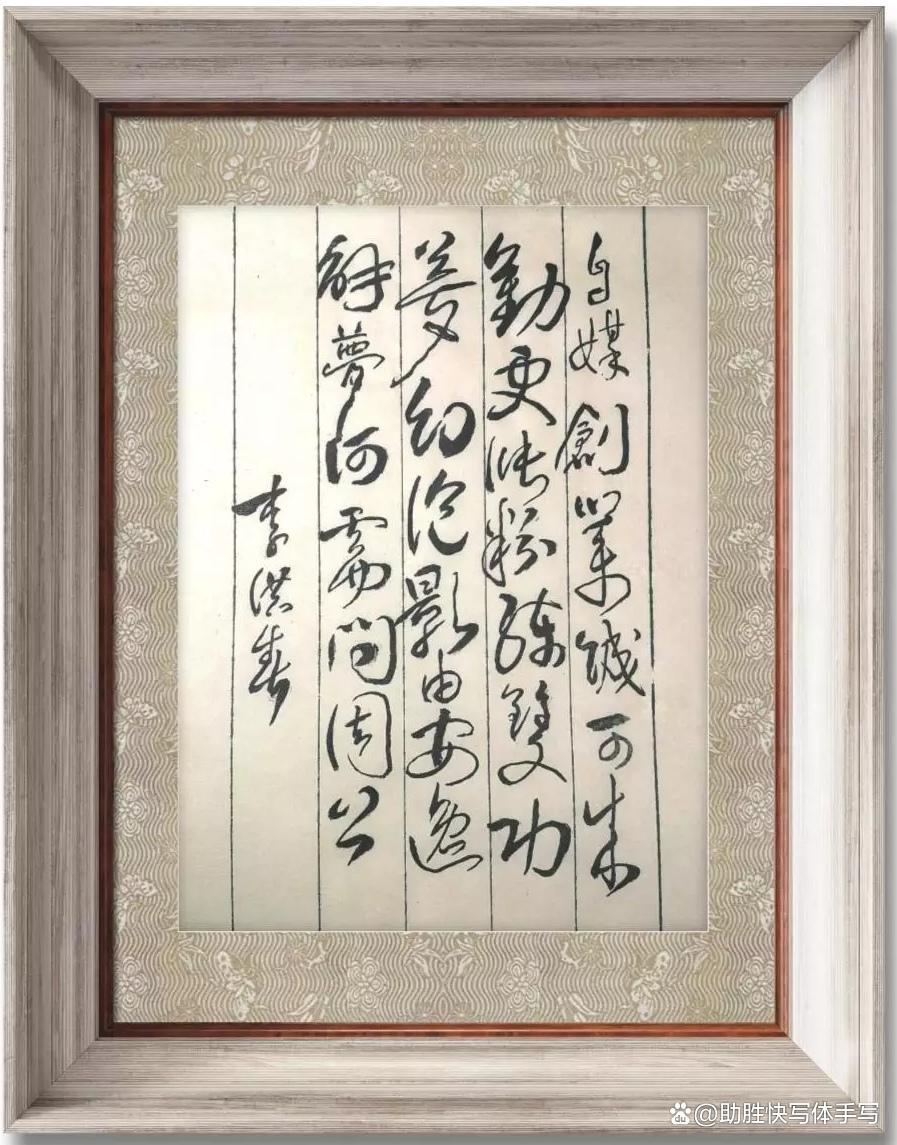 自媒創業誠可崇
勤更漲粉練雙功
夢幻泡影由安逸
解夢何需問周公
李洪春
@助胜快写体手写